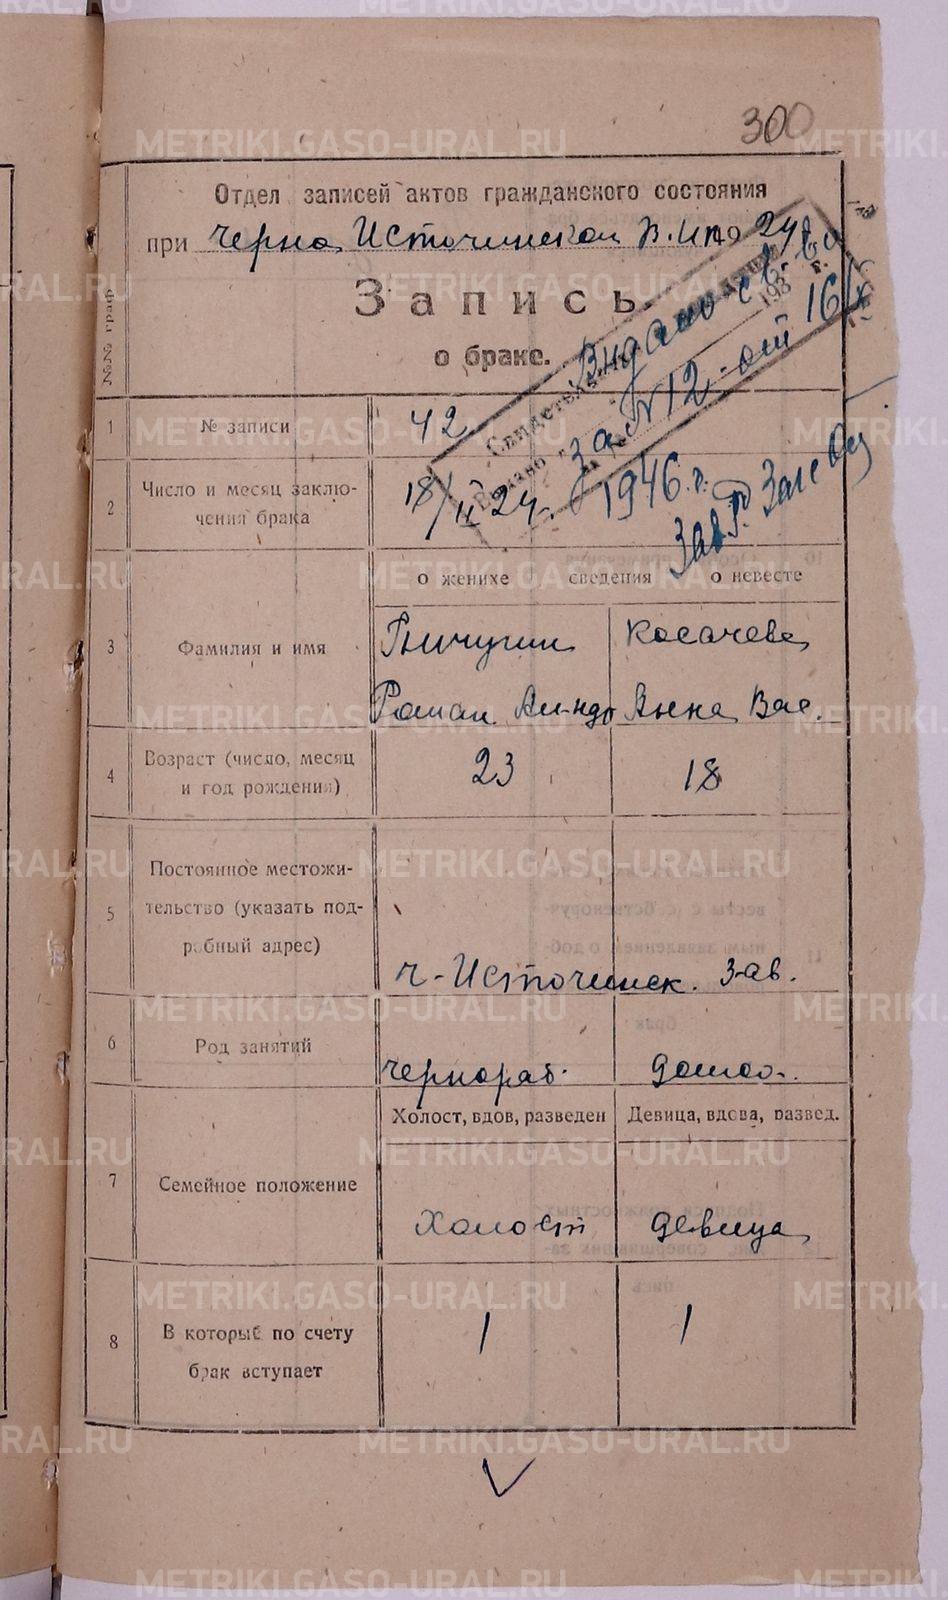 300
Отдел записей актов гражданского состояния
при Черно Источинском В.И.К. 1924
№№ граф
Запись
о браке.
Свидетельство
Выдано св-во
193 г.
за №12 от 16/X
1946 г.
Зав. Загс
1 № записи 42
2 Число и месяц заклю-
чения брака 18/II 24.
о женихе сведения о невесте
3 Фамилия и имя Пичугин Косачева
Роман Анна Вас.
4 Возраст (число, месяц
и год рождения) 23 18
5 Постоянное местожи-
тельство (указать под-
робный адрес)
Ч-Источинск. Зав.
6 Род занятий чернораб. домхоз.
Холост, вдов, разведен Девица, вдова, развед.
7 Семейное положение Холост девица
8 В который по счету
брак вступает 1 1
METRIKI.GASO-URAL.RU